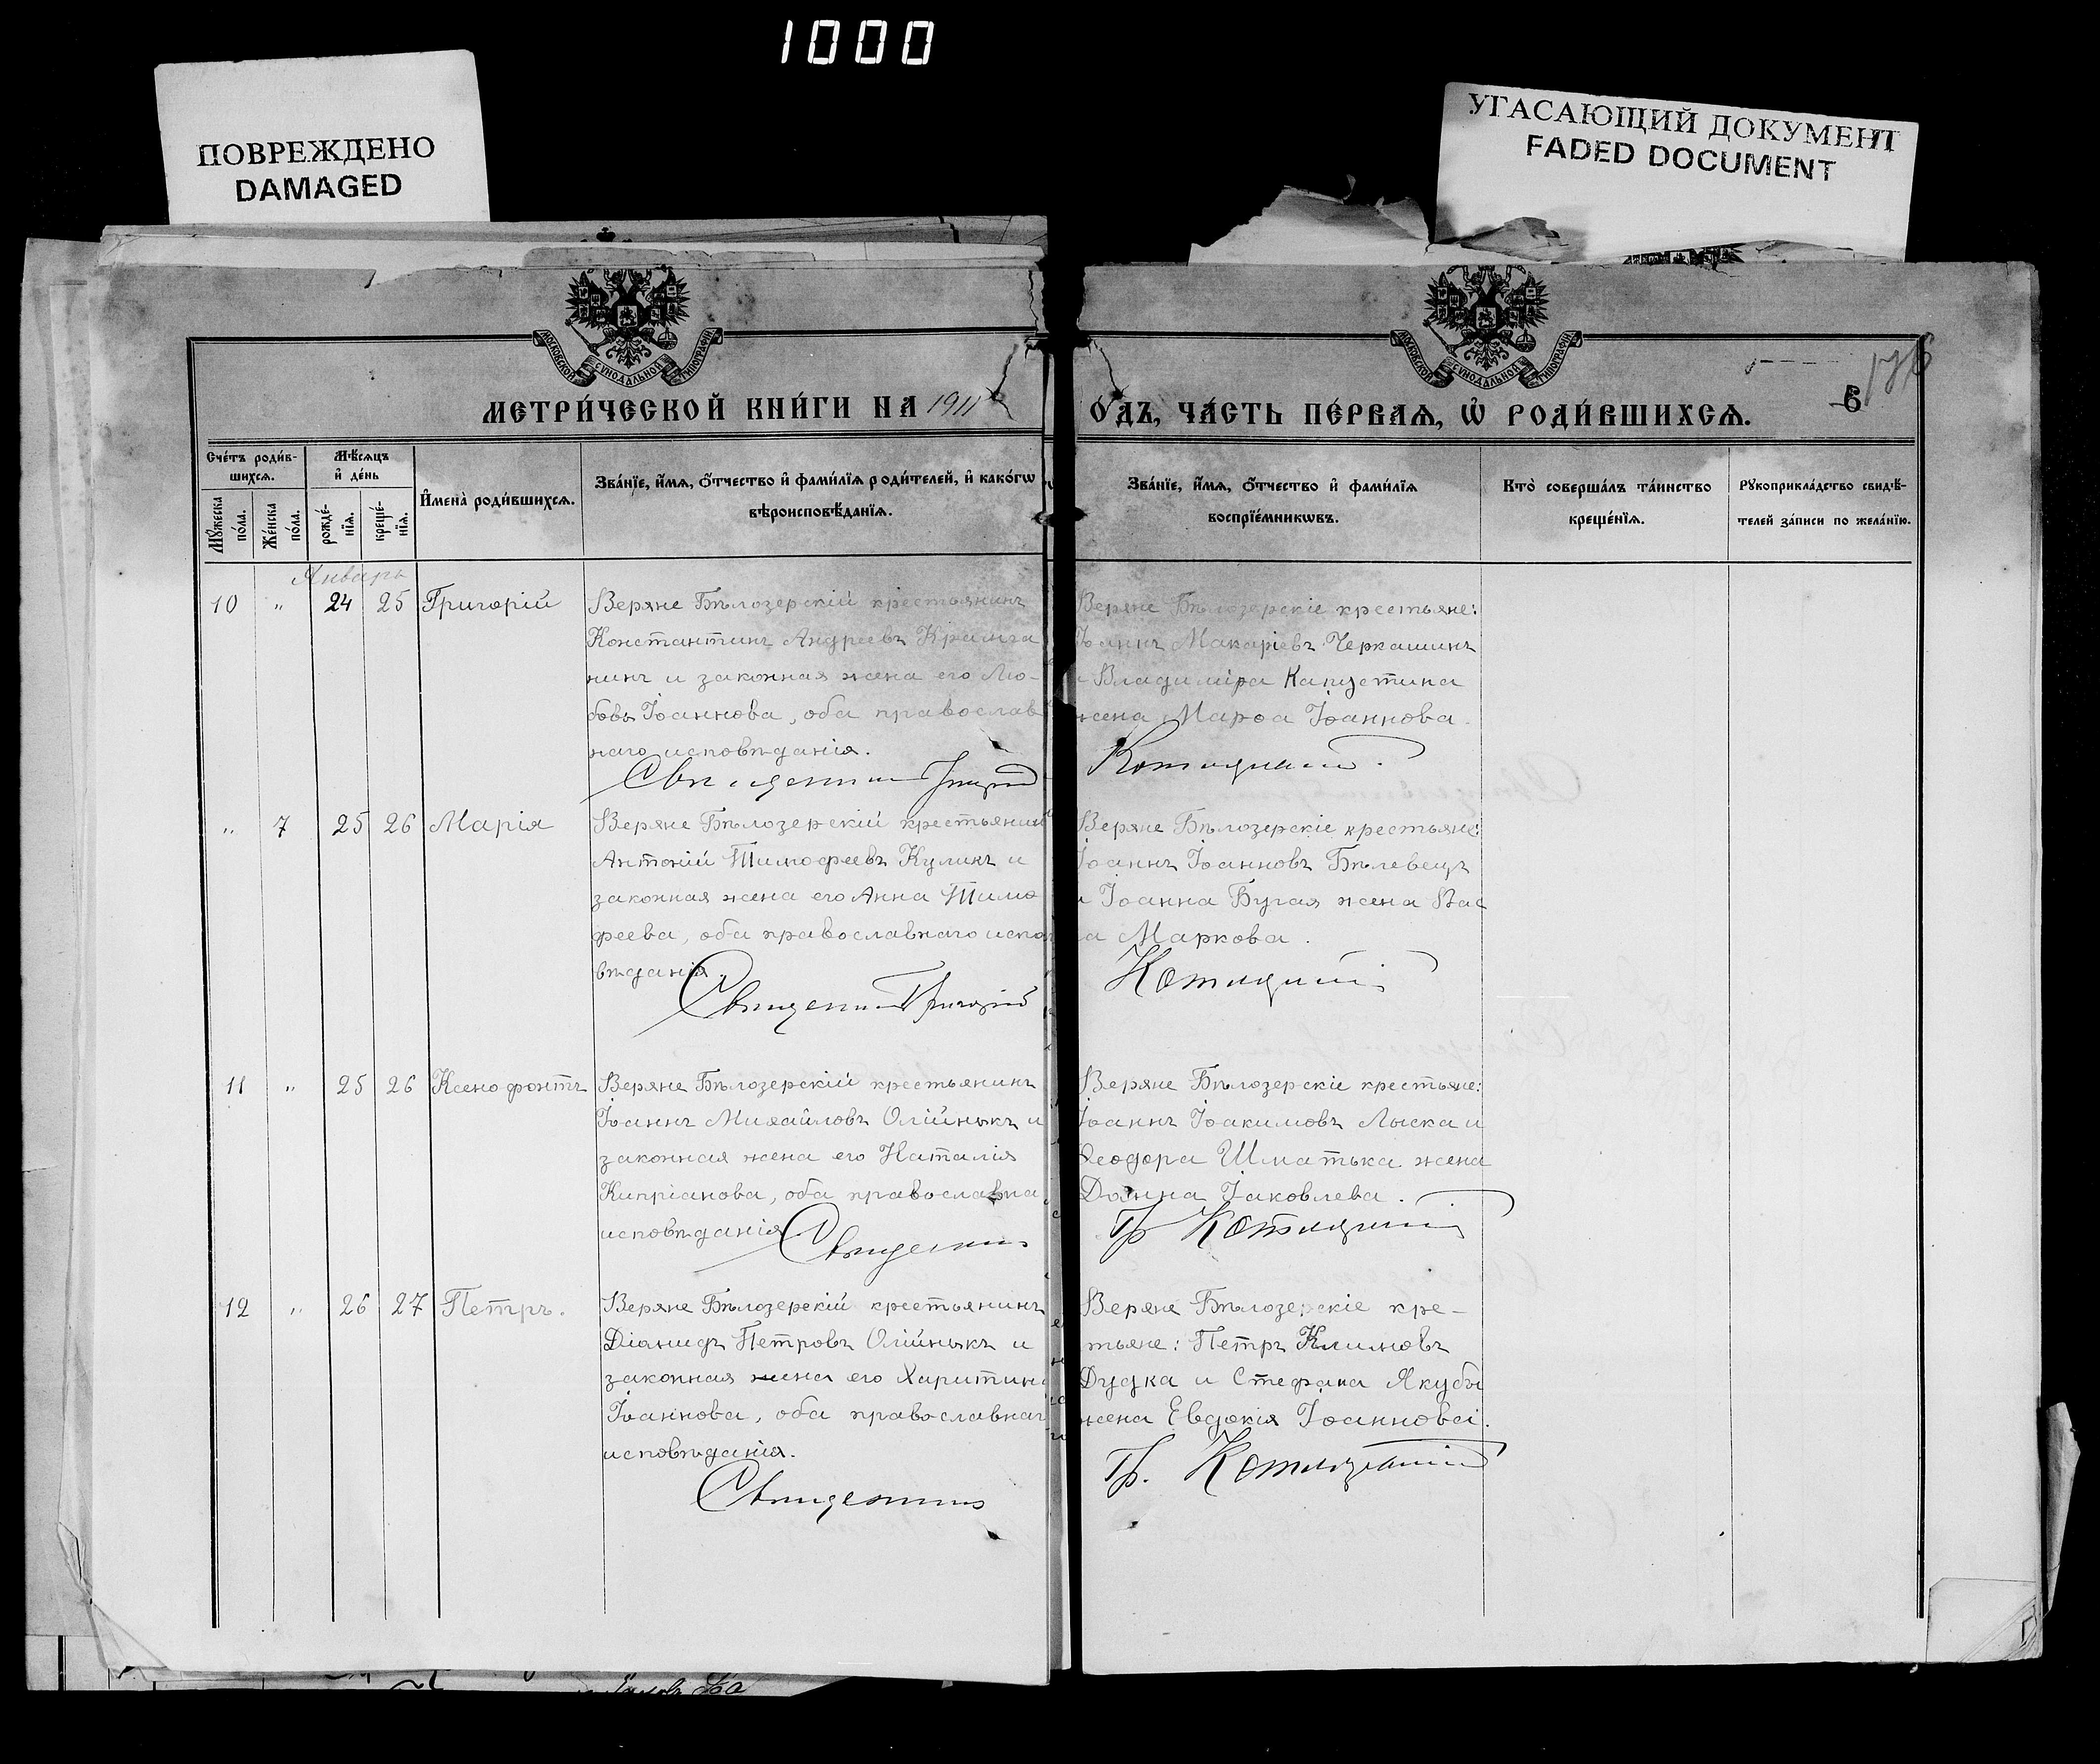 1000
ПОВРЕЖДЕНО
DAMAGED
УГАСАЮЩИЙ ДОКУМЕНТ
FADED DOCUMENT
МОСКОВСКОЙ СѴНОДАЛЬНОЙ ТИПОГРАФІИ
МОСКОВСКОЙ СѴНОДАЛЬНОЙ ТИПОГРАФІИ
МЕТРИ́ЧЕСКОЙ КНИ́ГИ НА 1911
О́ДЪ, ЧА́СТЬ ПЕ́РВАѦ, Ѡ҆ РОДИ́ВШИХСѦ.
6
176
Сче́тъ роди́в-
шихсѧ.
Мꙋ́жеска
по́ла.
Же́нска
по́ла.
Мѣ́сѧцъ
и҆ де́нь
рожде́-
нїѧ.
креще́-
нїѧ.
И҆мена̀ роди́вшихсѧ.
Зва́нїе, и҆́мѧ, ѻ҆́тчество и҆ фами́лїѧ роди́телей, и҆ како́гѡ
вѣроисповѣ́данїѧ.
Зва́нїе, и҆́мѧ, ѻ҆́тчество и҆ фами́лїѧ
воспрїе́мникѡвъ.
Кто̀ соверша́лъ та́инство
креще́нїѧ.
Рꙋкоприкла́дство свидѣ́-
телей за́писи по жела́нїю.
Январь
10 " 24 25 Григорій
Веряне Бѣлозерскій крестьянинъ
Константинъ Андреевъ
нинъ и законная жена его Лю-
бовь Іоаннова, оба православ
наго исповѣданія.
Веряне Бѣлозерскіе крестьяне:
Іоаннъ Макаріевъ Черкашинъ
и Владиміра Капустина
жена Марѳа Іоаннова.
" 7 25 26 Марія
Веряне Бѣлозерскій крестьянин
Антоній Тимофеевъ Куликъ и
законная жена его Анна Тимо
феева, оба православнаго испо
вѣданія.
Григорій
Веряне Бѣлозерскіе крестьяне:
Іоаннъ Іоанновъ Бѣлевецъ
и Іоанна Бугая жена Вас
а Маркова.
11 " 25 26 Ксенофонтъ
Веряне Бѣлозерскій крестьянинъ
Іоаннъ Михайловъ Олійныкъ и
законная жена его Наталія
Кипріанова, оба православна
исповѣданія
Веряне Бѣлозерскіе крестьяне:
Іоаннъ Іоакимовъ Лыска и
Ѳеодора Шматька жена
Домна Іаковлева.
Гр
12 " 26 27 Петръ.
Веряне Бѣлозерскій крестьянинъ
Діанидъ Петровъ Олійныкъ и
законная жена его Харитин
Іоаннова, оба православнаг
исповѣданія.
Веряне Бѣлозерскіе кре-
тьяне: Петръ Климовъ
Дудка и Стефана Якубы
жена Евдокія Іоаннова.
Гр.